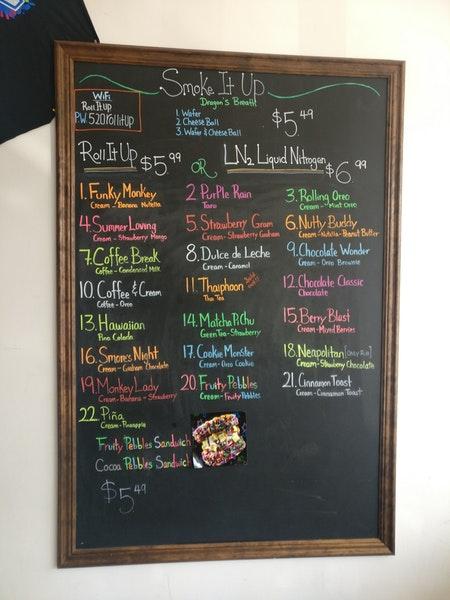 Smoke It Up
Dragon's Breath
WiFi
Roll It Up
P.W. 520rollitup
1. Wafer
2. Cheese Ball
3. Wafer & Cheese Ball
$5.49
Roll It Up $5.99 OR LN2 Liquid Nitrogen $6.99
1. Funky Monkey
Cream - Banana Nutella
2. Purple Rain
Taro
3. Rolling Oreo
Cream - Mint Oreo
4. Summer Loving
Cream - Strawberry Mango
5. Strawberry Gram
Cream - Strawberry Graham
6. Nutty Buddy
Cream - Nutella - Peanut Butter
7. Coffee Break
Coffee - Condensed Milk
8. Dulce de Leche
Cream - Caramel
9. Chocolate Wonder
Cream - Oreo Brownie
10. Coffee & Cream
Coffee - Oreo
11. Thaiphoon
Thai Tea
12. Chocolate Classic
Chocolate
13. Hawaiian
Pina Colada
14. Matcha Pi Chu
Green Tea - Strawberry
15. Berry Blast
Cream - Mixed Berries
16. Smores Night
Cream - Graham Chocolate
17. Cookie Monster
Cream - Oreo Cookie
18. Neapolitan [Only Roll]
Cream - Strawberry Chocolate
19. Monkey Lady
Cream - Banana - Strawberry
20. Fruity Pebbles
Cream - Fruity Pebbles
21. Cinnamon Toast
Cream - Cinnamon Toast
22. Piña
Cream - Pineapple
Fruity Pebbles Sandwich
Cocoa Pebbles Sandwich
$5.49